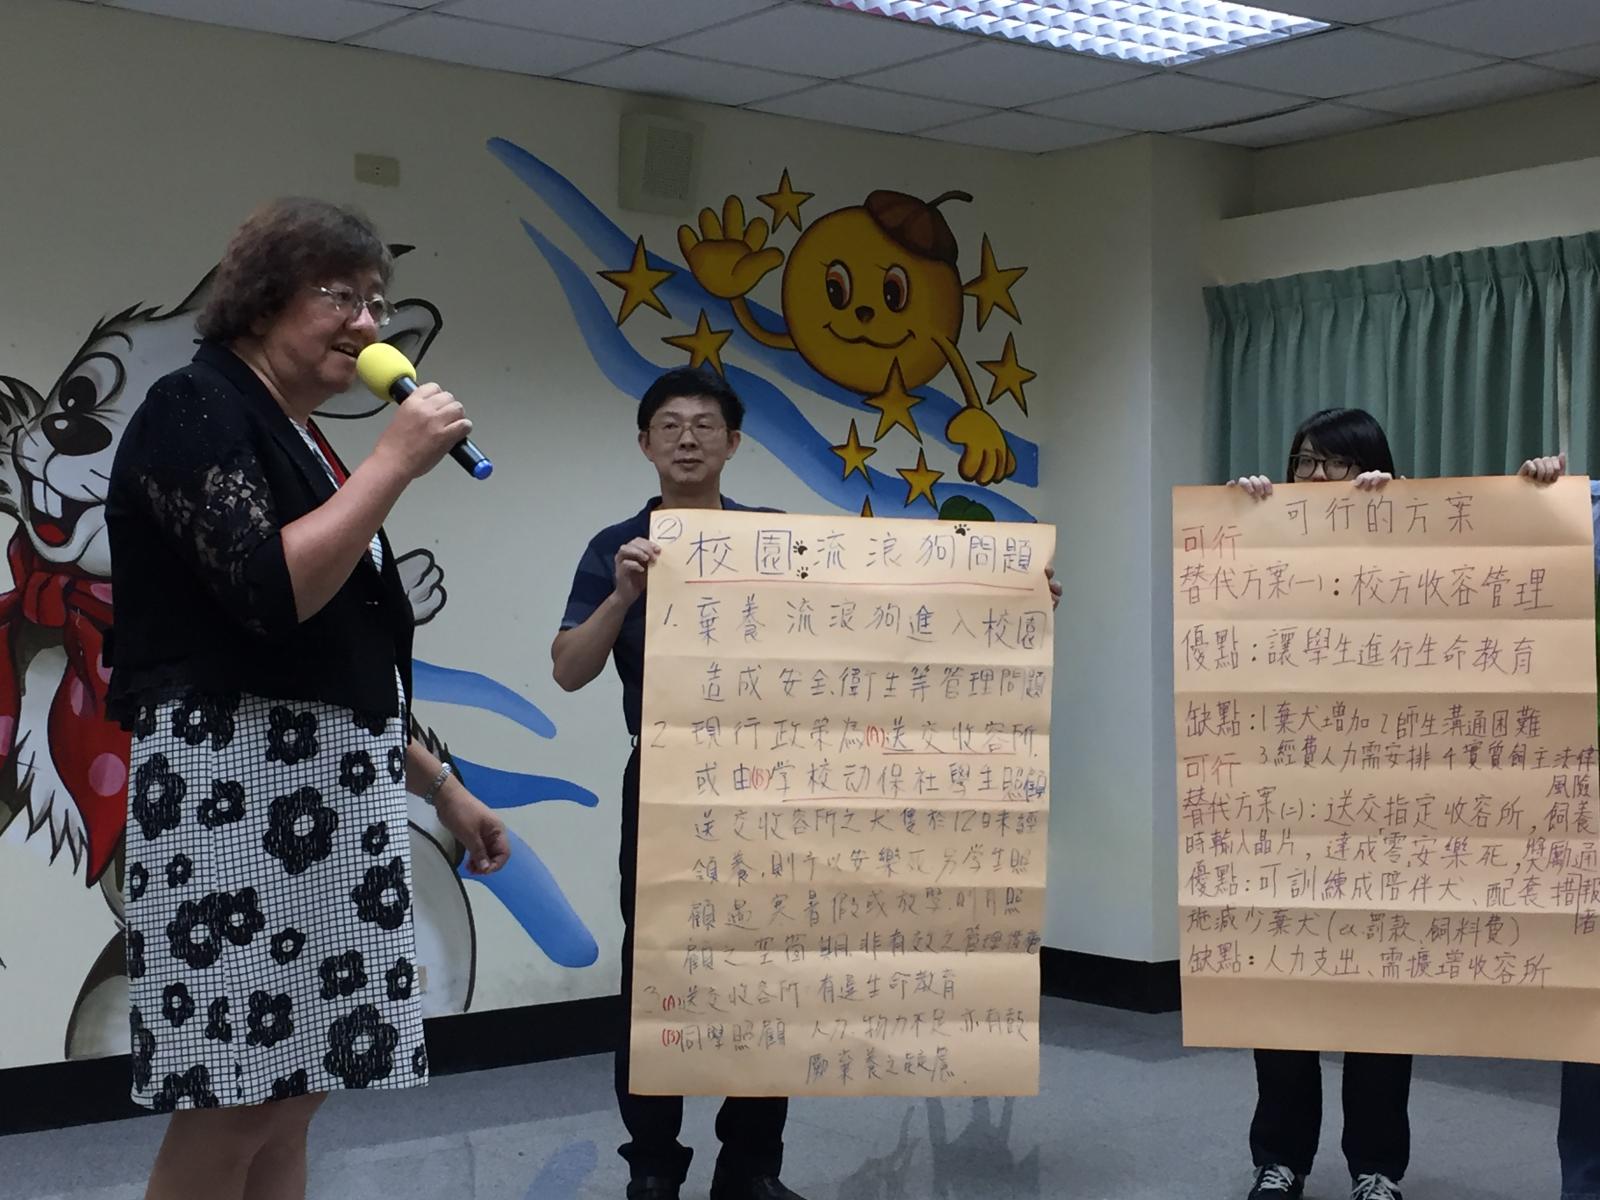 ② 校園流浪狗問題
1. 棄養流浪狗進入校園
造成安全、衛生等管理問題
2 現行政策為(A)送交收容所.
或由(B)學校动保社學生照顧
送交收容所之犬隻於12日未經
領養,則予以安樂死另學生照
顧遇寒暑假或放學,則有照
顧之空窗期,非有效之管理
3(A)送交收容所:有違生命教育
(B)同學照顧 人力、物力不足亦有鼓
勵棄養之疑慮.
可行的方案
可行
替代方案(一):校方收容管理
優點:讓學生進行生命教育
缺點:1棄犬增加 2師生溝通困難
3經費人力需安排 4實質飼主法律
風險
可行
替代方案(二):送交指定收容所,飼養
時輸入晶片,達成「零安樂死,獎勵通
報者
優點:可訓練成陪伴犬、配套措
施減少棄犬(ex.罰款,飼料費)
缺點:人力支出、需擴增收容所